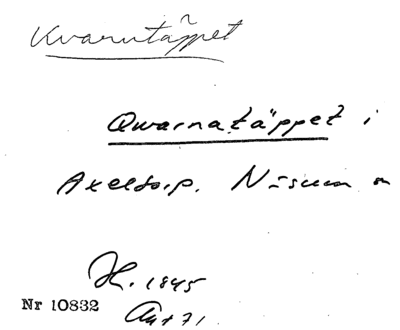 Kvarntäppet
Qwarnatäppet i
Axeltorp. Näsum
H. 1845
Nr 10832
Akt 71.